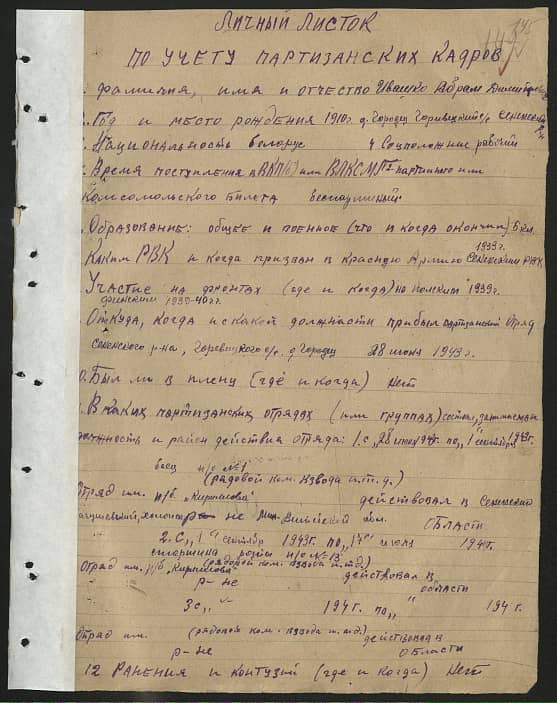 Личный Листок
по учету партизанских кадров
фамилия, имя и отчество Ивашко Абрам
Год и место рождения 1910г. д. Городец Горивецкий с/с Сенненский
Национальность белорус 4 Соцположние рабочий
Время поступления в ВКП(б) или ВЛКСМ № партийного или
Комсомольского билета беспартийный
Образование: общее и военное (что и когда окончил) 5 кл.
Каким РВК и когда призван в красную Армию Сенненским РВК
1939г.
Участие на фронтах (где и когда) на польским 1939г.
финским 1939-40гг.
Откуда, когда и с какой должности прибыл партизанский отряд
Сенненского р-на, Горевицкого с/с. д Городец 28 июня 1943г.
Был ли в плену (где и когда) Нет
В каких партизанских отрядах (или группах) состоял, занимаемая
должность и район действия отряда: 1. с „28 июня 1943г. по „1" сентября 1943г.
боец п/о №1
(рядовой ком. взвода и.т. д.)
Отряд им. п/б. „Кирпичова" действовал в Сенненско
р не области
2. С „1" сентябр 1943г. по „17" июля 194 г.
старшина роты п/о №13
(рядовой ком. взвода и.т.д.)
Отряд им. п/б „Кирпичова" действовал в
р-не области
3с „ " 194 г. по „ 194 г.
Отряд им. (рядовой ком. взвода и.т.д.) действовал в
р-не области
12 Ранения и контузий (где и когда) Нет